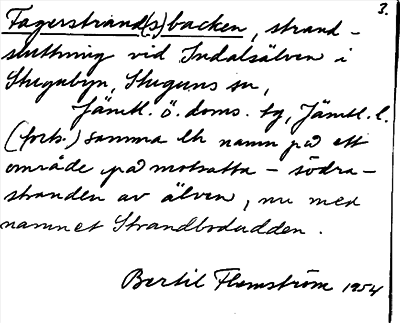 3.
Fagerstrand(s)backen, strand-
sluttning vid Indalsälven i
Stugubyn, Stuguns sn,
Jämtl. ö. doms. tg, Jämtl. l.
(forts.) samma lk namn på ett
område på motsatta - södra -
stranden av älven, nu med
namnet Strandbodudden.
Bertil Flemström 1954